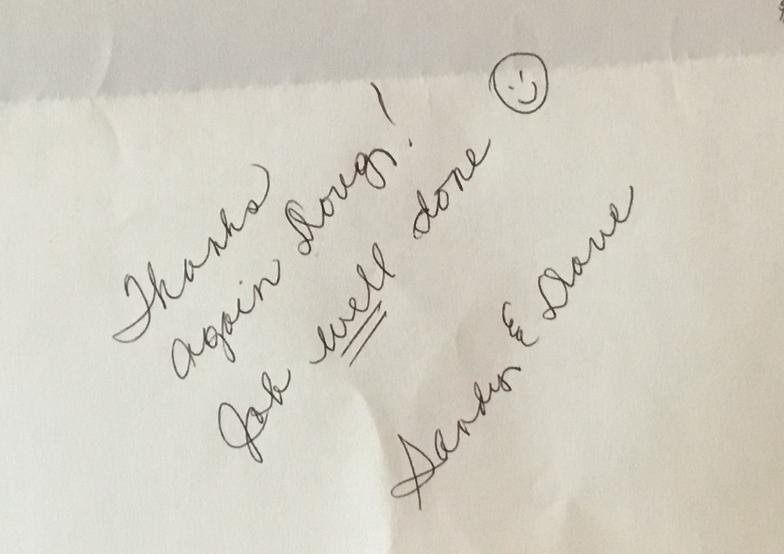 Thanks
again Doug!
Job well done
Sandy & Dave